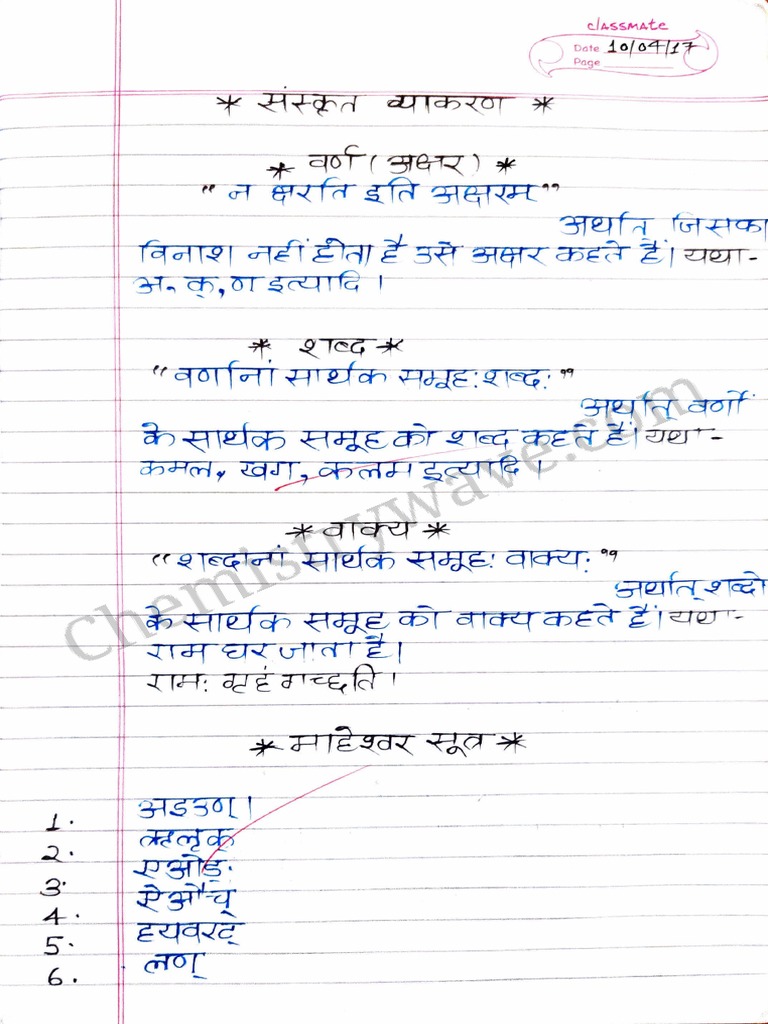 classmate
Date 10/04/17
Page
* संस्कृत व्याकरण *
* वर्ण (अक्षर) *
"न क्षरति इति अक्षरम"
अर्थात् जिसका
विनाश नहीं होता है उसे अक्षर कहते हैं। यथा-
अ, क्, ण इत्यादि।
* शब्द *
"वर्णानां सार्थक समूह: शब्द:"
अर्थात् वर्णों
के सार्थक समूह को शब्द कहते हैं। यथा-
कमल, खग, कलम इत्यादि।
* वाक्य *
"शब्दानां सार्थक समूह: वाक्य:"
अर्थात् शब्दो
के सार्थक समूह को वाक्य कहते हैं। यथा-
राम घर जाता है।
राम: गृहं गच्छति।
* माहेश्वर सूत्र *
1. अइउण्।
2. ऋलृक्
3. एओङ्
4. ऐऔच्
5. हयवरट्
6. लण्
chemistrywave.com